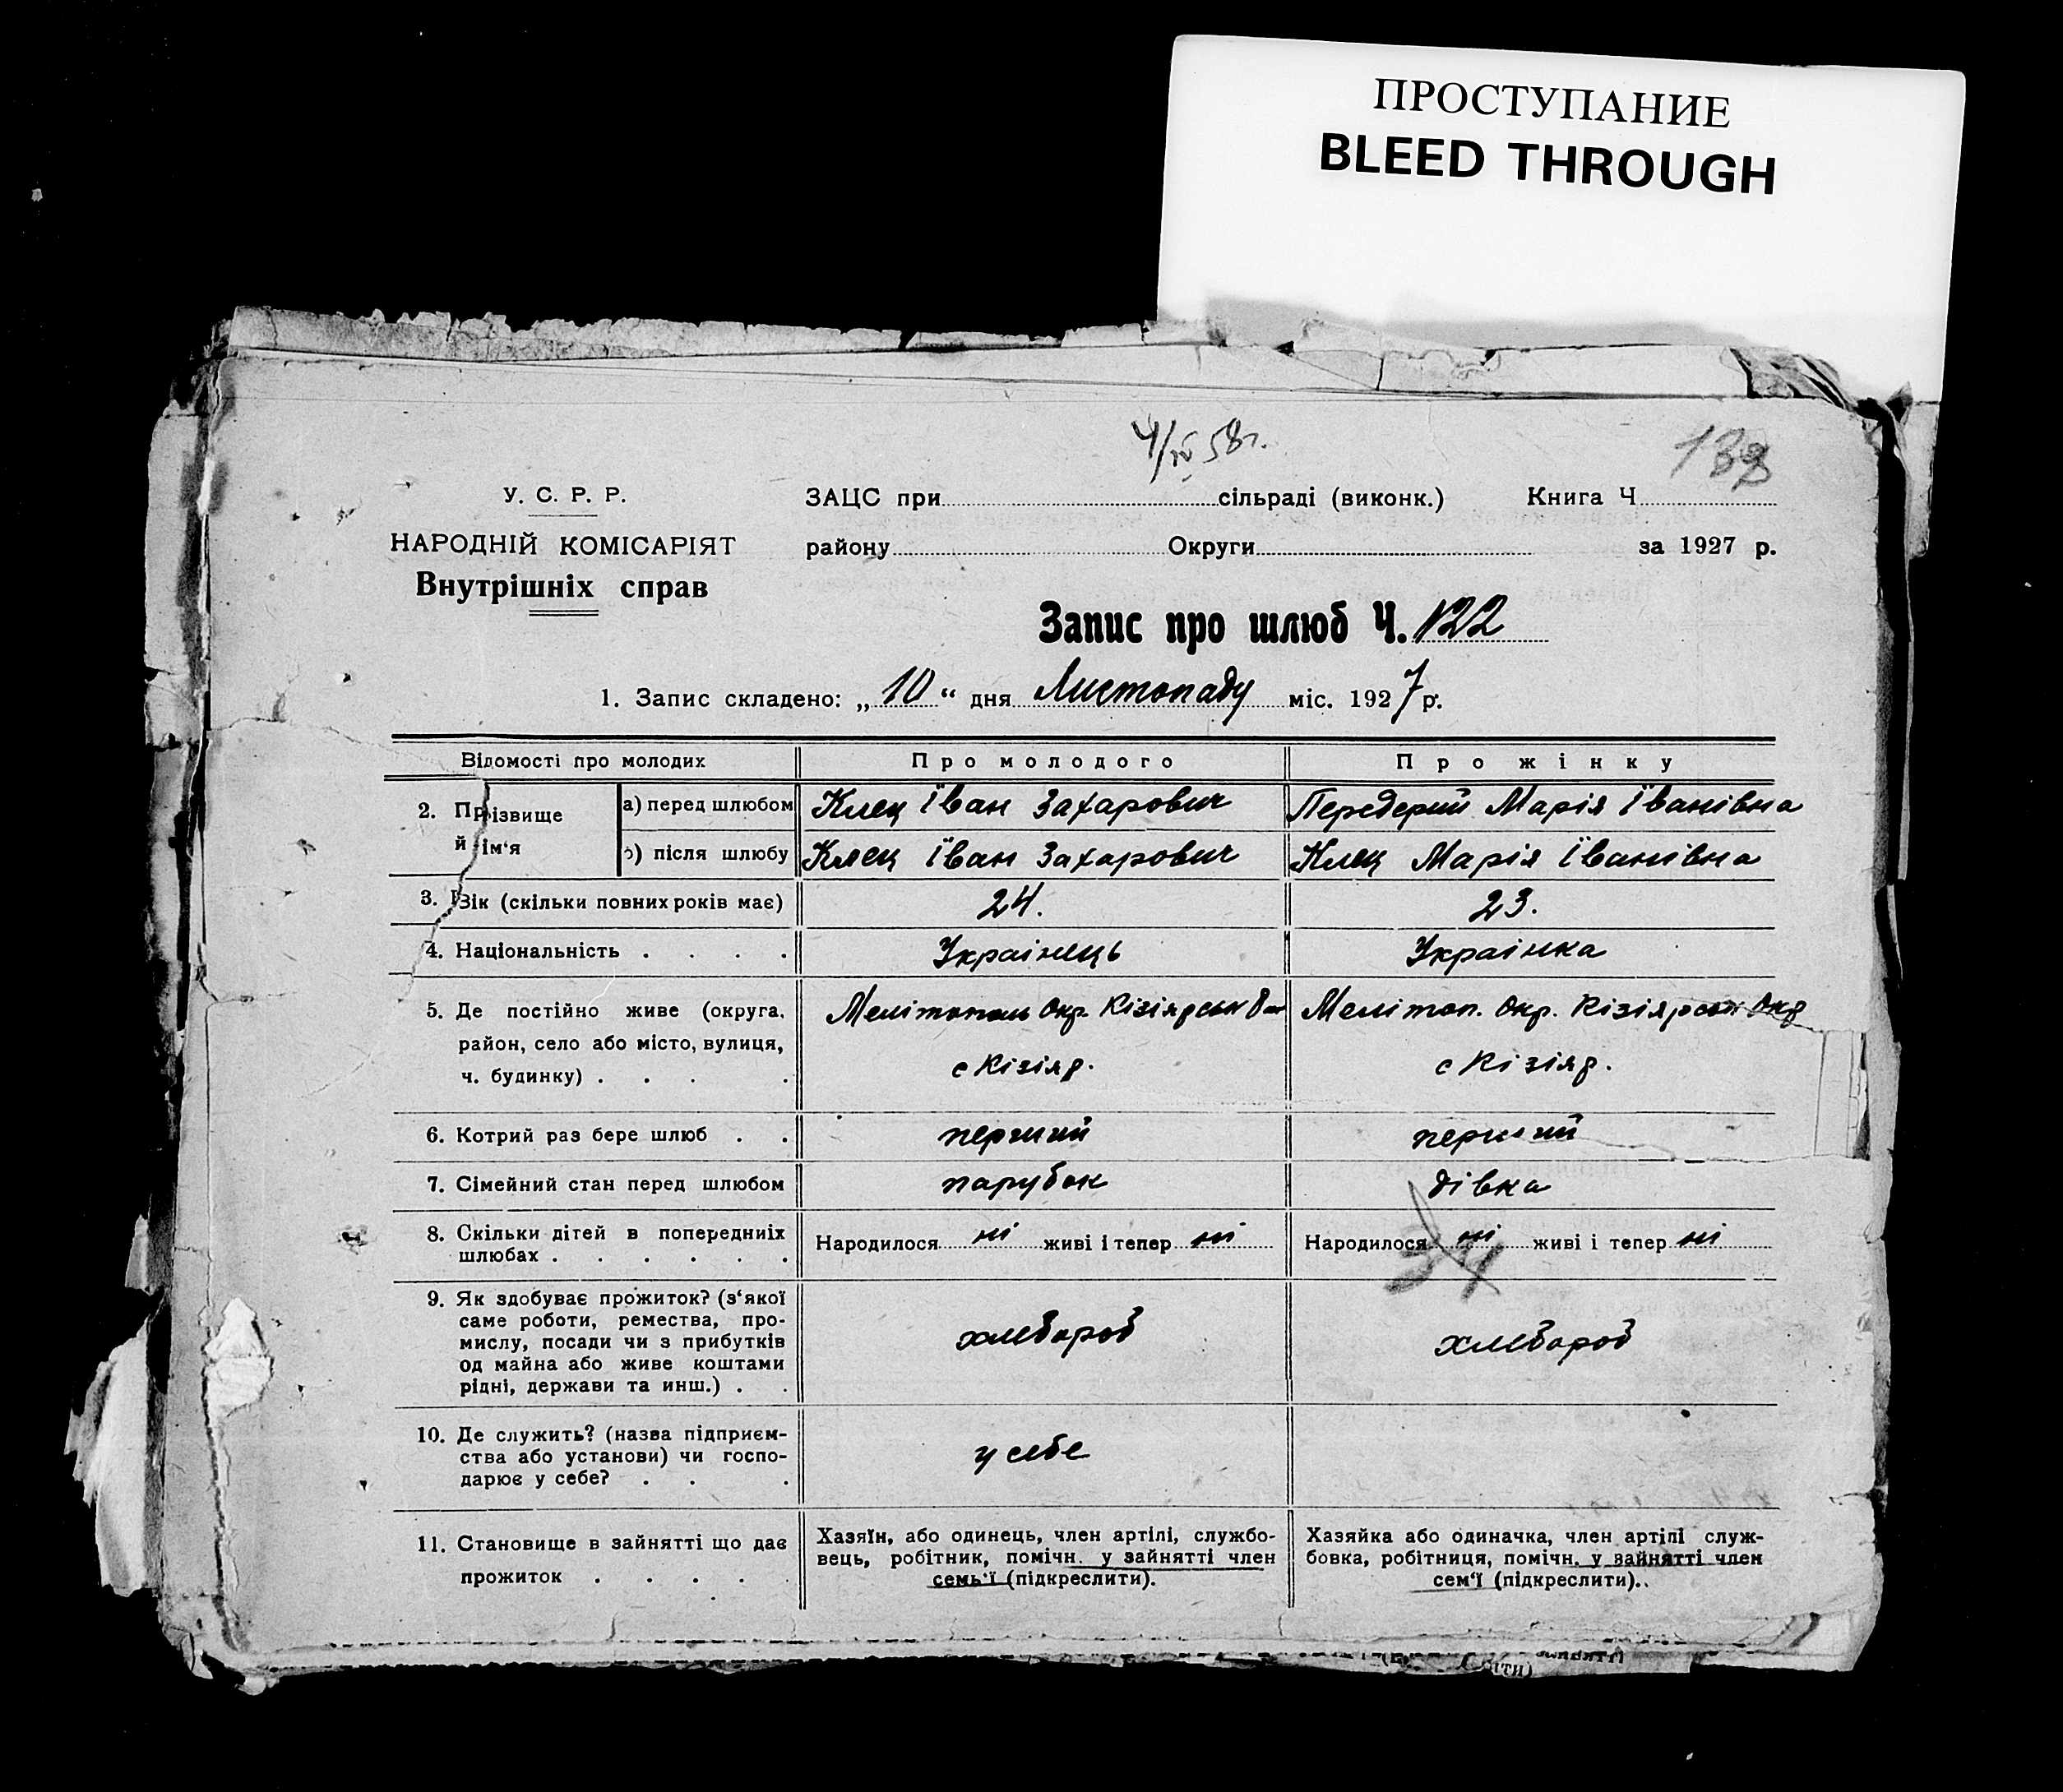 ПРОСТУПАНИЕ
BLEED THROUGH
4/IV 58г.
У. С. Р. Р.
ЗАЦС при сільраді (виконк.) Книга Ч
НАРОДНІЙ КОМІСАРІЯТ
району Округи за 1927 р.
Внутрішніх справ
Запис про шлюб Ч. 122
1. Запис складено: „10“ дня Листопаду міс. 1927 р.
Відомості про молодих Про молодого Про жінку
2. Прізвище й ім‘я
а) перед шлюбом Клец Їван Захарович Передерий Марія Їванівна
б) після шлюбу Клец Їван Захарович Клец Марія Їванівна
3. Вік (скільки повних років має) 24. 23.
4. Національність . . . . Украінець Украінка
5. Де постійно живе (округа, Мелітополь Окр. Кізіярськ Мелітоп. Окр. Кізіярськ Окр
район, село або місто, вулиця, с Кізіяр. с Кізіяр.
ч. будинку) . . . .
6. Котрий раз бере шлюб . . перший перший
7. Сімейний стан перед шлюбом парубок дівка
8. Скільки дітей в попередниіх Народилося ні живі і тепер ні Народилося ні живі і тепер ні
шлюбах . . . . . .
9. Як здобуває прожиток? (з‘якої
саме роботи, ремества, про-
мислу, посади чи з прибутків хлебороб хлебороб
од майна або живе коштами
рідні, держави та инш.) . .
10. Де служить? (назва підприєм-
ства або установи) чи госпо- у себе
дарює у себе? . . .
11. Становище в зайнятті що дає
прожиток . . . .
Хазяїн, або одинець, член артілі, службо-
вець, робітник, помічн. у зайнятті член
семь‘ї (підкреслити).
Хазяйка або одиначка, член артілі служ-
бовка, робітниця, помічн. у зайнятті член
сем‘ї (підкреслити)..